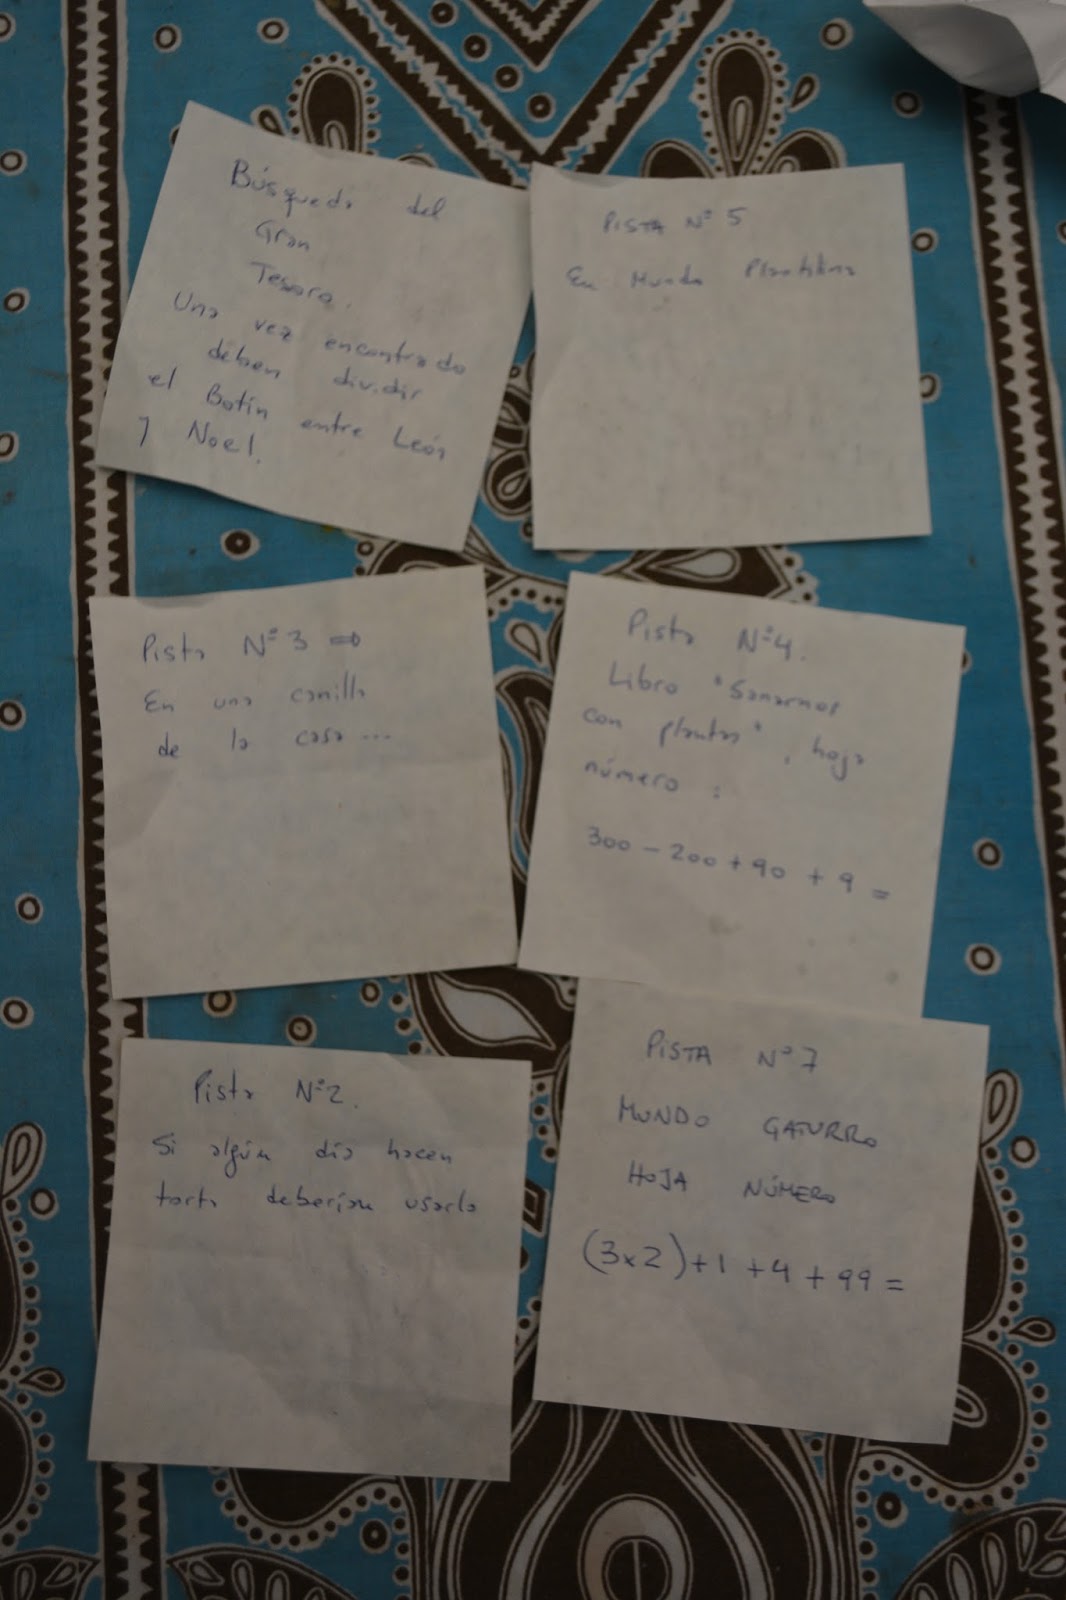 Búsqueda del
Gran
Tesoro.
Una vez encontrado
deben dividir
el Botín entre León
y Noel.
PISTA Nº 5
En Mundo Plastilina
Pista Nº 3 ⇒
En una canilla
de la casa ...
Pista Nº 4.
Libro "Sanarnos
con plantas", hoja
número :
300 - 200 + 90 + 9 =
Pista Nº 2.
Si algún día hacen
torta deberían usarla
PISTA Nº 7
MUNDO GATURRO
HOJA NÚMERO
(3x2)+1+4+99=